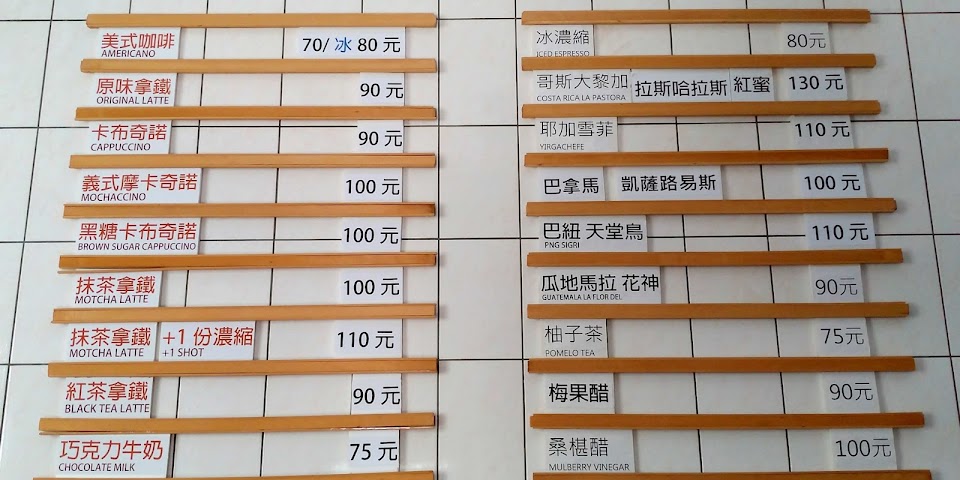 美式咖啡 70/ 冰 80 元
AMERICANO
原味拿鐵 90 元
ORIGINAL LATTE
卡布奇諾 90 元
CAPPUCCINO
義式摩卡奇諾 100 元
MOCHACCINO
黑糖卡布奇諾 100 元
BROWN SUGAR CAPPUCCINO
抹茶拿鐵 100 元
MOTCHA LATTE
抹茶拿鐵 +1 份濃縮 110 元
MOTCHA LATTE +1 SHOT
紅茶拿鐵 90 元
BLACK TEA LATTE
巧克力牛奶 75 元
CHOCOLATE MILK
冰濃縮 80元
ICED ESPRESSO
哥斯大黎加 拉斯哈拉斯 紅蜜 130 元
COSTA RICA LA PASTORA
耶加雪菲 110 元
YIRGACHEFE
巴拿馬 凱薩路易斯 100 元
巴紐 天堂鳥 110 元
PNG SIGRI
瓜地馬拉 花神 90元
GUATEMALA LA FLOR DEL
柚子茶 75元
POMELO TEA
梅果醋 90元
桑椹醋 100元
MULBERRY VINEGAR